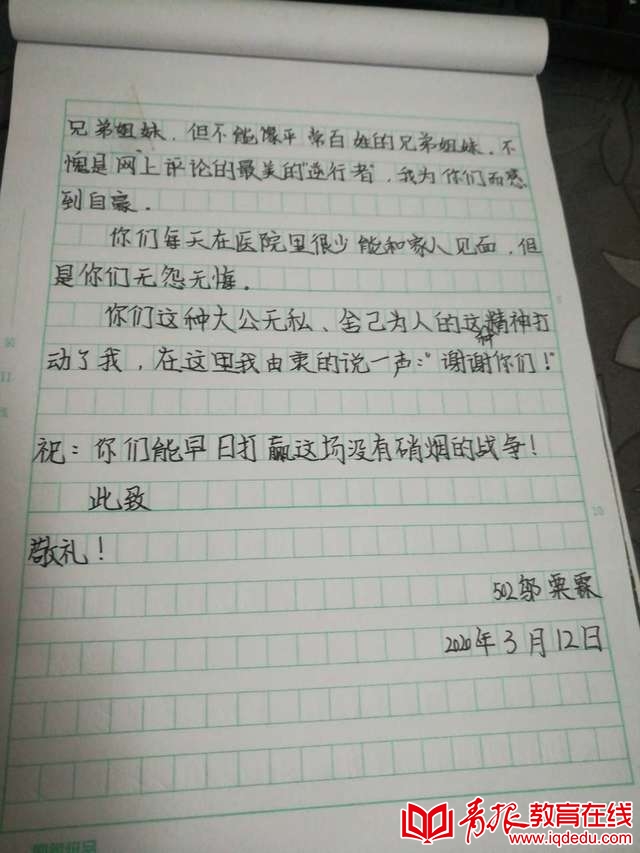 兄弟姐妹，但不能像平常百姓的兄弟姐妹，不
愧是网上评论的最美的“逆行者”，我为你们而感
到自豪。
你们每天在医院里很少能和家人见面，但
是你们无怨无悔。
你们这种大公无私、舍己为人的这种精神打
动了我，在这里我由衷的说一声：“谢谢你们！”
祝：你们能早日打赢这场没有硝烟的战争！
此致
敬礼！
502邹粟霖
2020年3月12日
青报教育在线
www.iqdedu.com